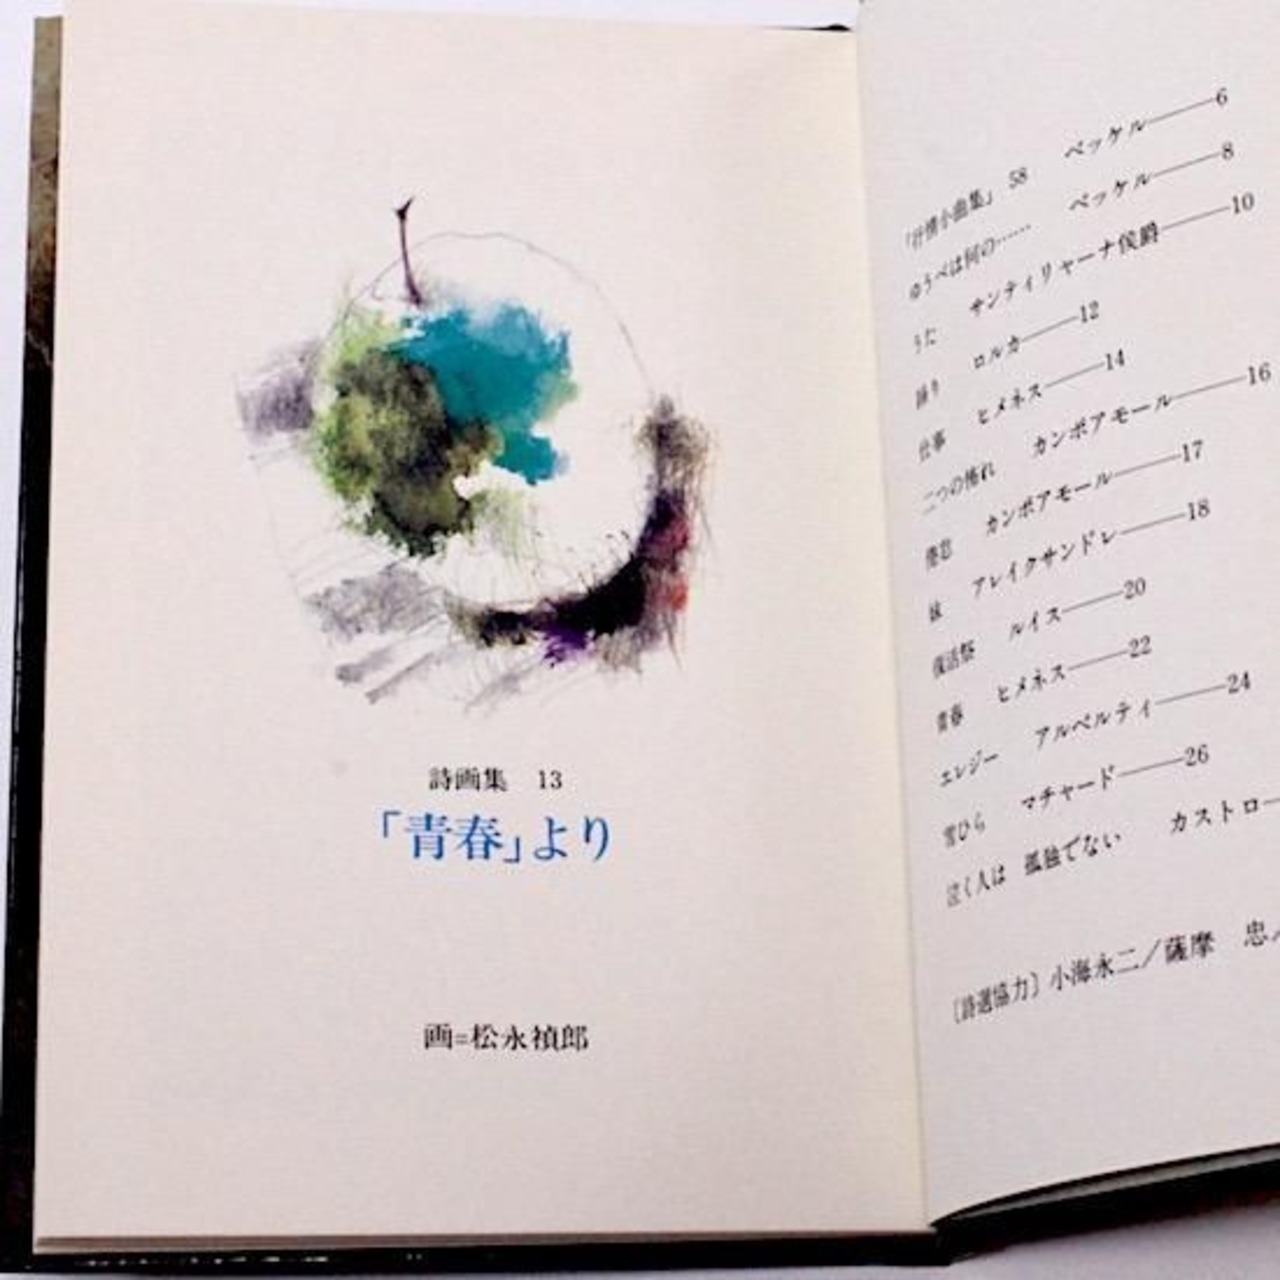 詩画集 13
「青春」より
画=松永禎郎
「抒情小曲集」 58 ベッケル——6
ゆうべは何の…… ベッケル——8
うた サンティリャーナ侯爵——10
踊り ロルカ——12
仕事 ヒメネス——14
二つの怖れ カンポアモール——16
倦怠 カンポアモール——17
妹 アレイクサンドレ——18
復活祭 ルイス——20
青春 ヒメネス——22
エレジー アルベルティ——24
雪ひら マチャード——26
泣く人は 孤独でない カストロ—
〔詩選協力〕小海永二/薩摩 忠/